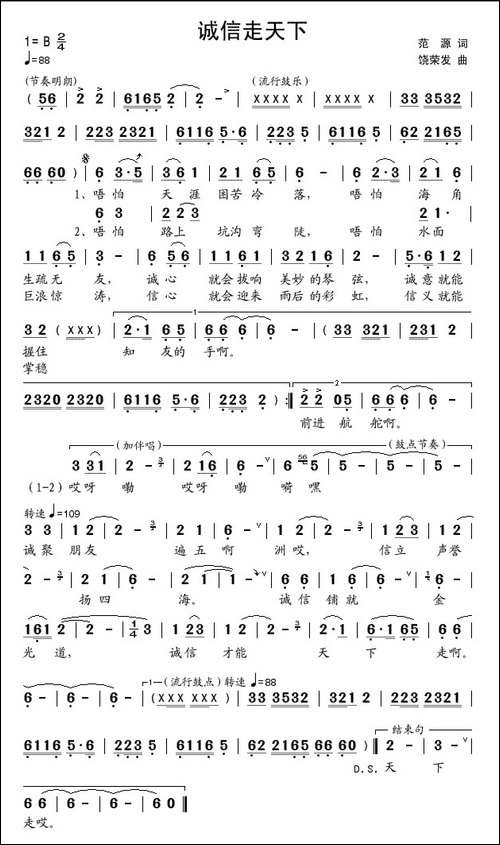 诚信走天下
1=B 2/4
♩=88
范 源 词
饶荣发 曲
(节奏明朗) (流行鼓乐)
( 56 | 2 2 | 6165 2 | 2 - ) | xxxx xxxx | xxxx x | 33 3532 |
321 2 | 223 2321 | 6116 5·6 | 223 5 | 6116 5 | 62 2165 |
66 60 ) | 6 3·5 | 361 | 21 65 | 6 - | 6 2·3 | 21 6 |
1、唔 怕 天 涯 困苦 冷 落, 唔 怕 海 角
6 3 | 223 | 21· |
2、唔 怕 路上 坑沟 弯 陡, 唔 怕 水面
1165 | 3 - | 6 56 | 1161 | 3216 | 2 - | 5·6 12 |
生疏无 友, 诚 心 就会拔响 美妙的琴 弦, 诚意就能
巨浪惊 涛, 信 心 就会迎来 雨后的彩 虹, 信义就能
1
3 2 ( xxx ) | 2·1 65 | 66 6 | 6 - | (33 321 | 231 2 |
握住 知 友的 手啊。
掌稳
2
2320 2320 | 6116 5·6 | 223 2 ) :‖ 2 2 05 | 66 6 | 6 - |
前进 航 舵啊。
(加伴唱) (鼓点节奏)
3 31 | 2 - | 2 16 | 6 - | 6 5 | 5 - | 5 - | 5 - |
(1-2) 哎呀 嘞 哎呀 嘞 嗬 嘿
转速 ♩=109
3 3 | 1 2 | 2 - | 2 1 | 6 - | 1 2 | 123 | 1 2 |
诚聚 朋友 遍五 啊 洲哎, 信立 声誉
2 - | 2 1 | 6 - | 2 1 | 1 - | 6 6 | 1 6 | 6 - |
扬四 海。 诚信 铺就 金
161 2 | 2 - | 2 - | 1/4 3 | 123 | 1 2 | 2·1 | 6·1 65 | 6 6 |
光 道, 诚信 才能 天 下 走啊。
1-(流行鼓点) 转速 ♩=88
6 - | 6 - | 6 - | (xxx xxx | 33 3532 | 321 2 | 223 2321 |
结束句
6116 5·6 | 223 5 | 6116 5 | 62 2165 66 60 ) ‖ 2 - | 3 - |
D.S. 天 下
66 6 - | 6 - | 6 60 ‖
走哎。